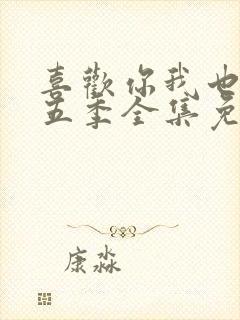 喜歡你我也
五季全集免
康淼